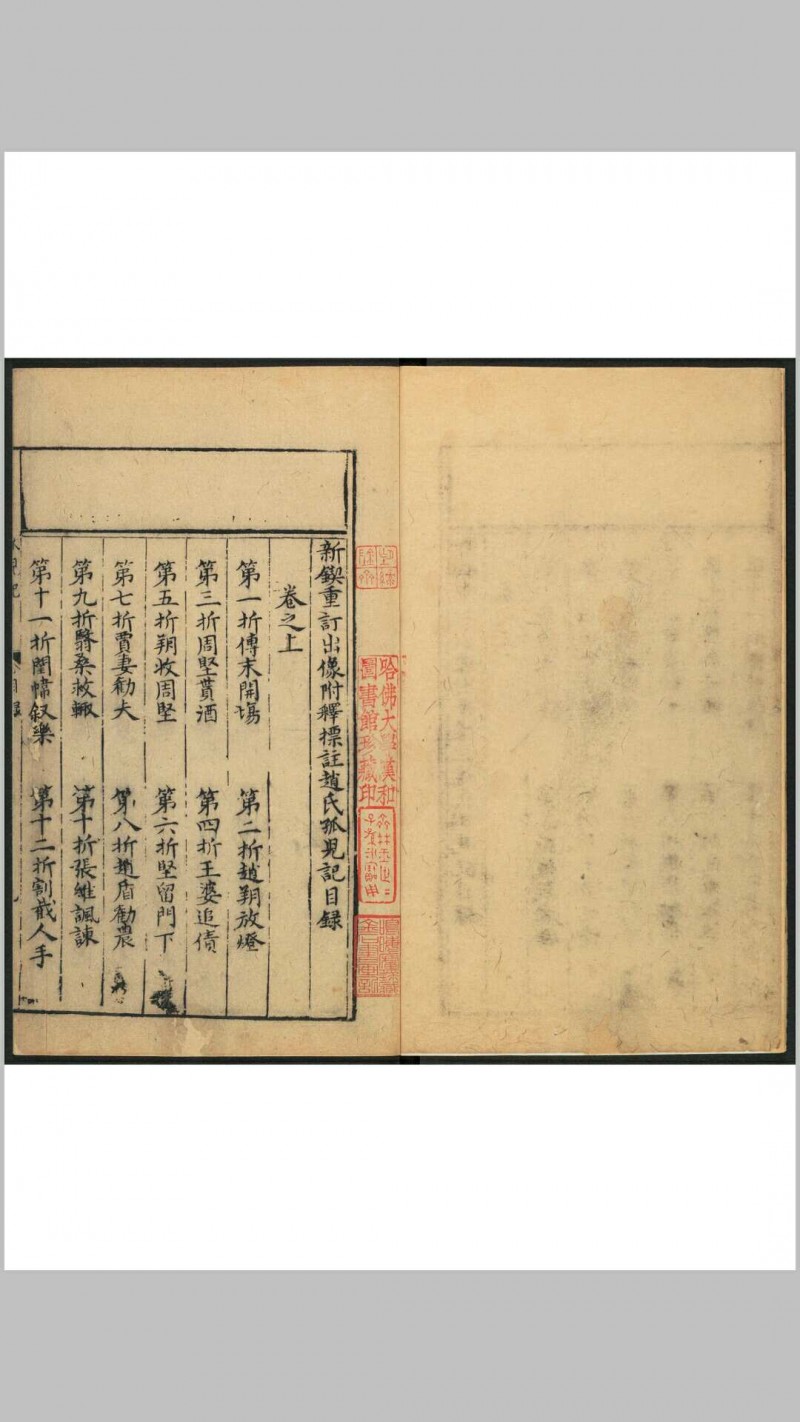 新鍥重訂出像附釋標註趙氏孤兒記目録
卷之上
第一折傳末開塲
第二折趙朔放燈
第三折周堅貰酒
第四折王婆追债
第五折朔收周堅
第六折堅留門下
第七折賈妻勸夫
第八折趙盾勸農
第九折翳桑救輒
第十折張維諷諫
第十一折閨幃叙樂
第十二折割截人手
哈佛大學漢和
圖書館珍藏印